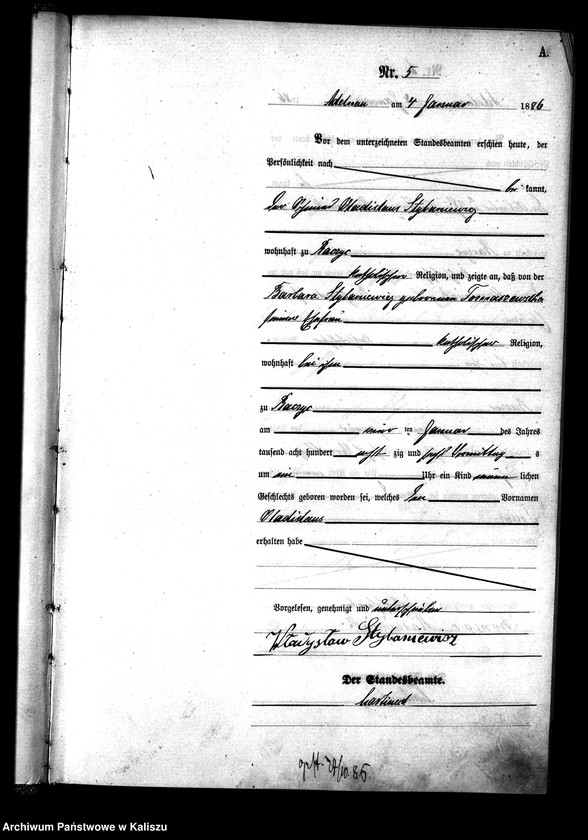 A.
Nr. 5
Adelnau am 4 Januar 1886
Vor dem unterzeichneten Standesbeamten erschien heute, der
Persönlichkeit nach
be kannt,
der Schmied Vladislaus Stybaniewicz
wohnhaft zu Raczyc
katholischer Religion, und zeigte an, daß von der
Barbara Stybaniewicz geborenen Tomaszewska
seiner Ehefrau
katholischer Religion,
wohnhaft bei ihm
zu Raczyc
am ten Januar des Jahres
tausend acht hundert acht zig und sechs Vormittag s
um ein Uhr ein Kind männ lichen
Geschlechts geboren worden sei, welches den Vornamen
Vladislaus
erhalten habe
Vorgelesen, genehmigt und unterschrieben
Władysław Stybaniewicz
Der Standesbeamte.
Archiwum Państwowe w Kaliszu